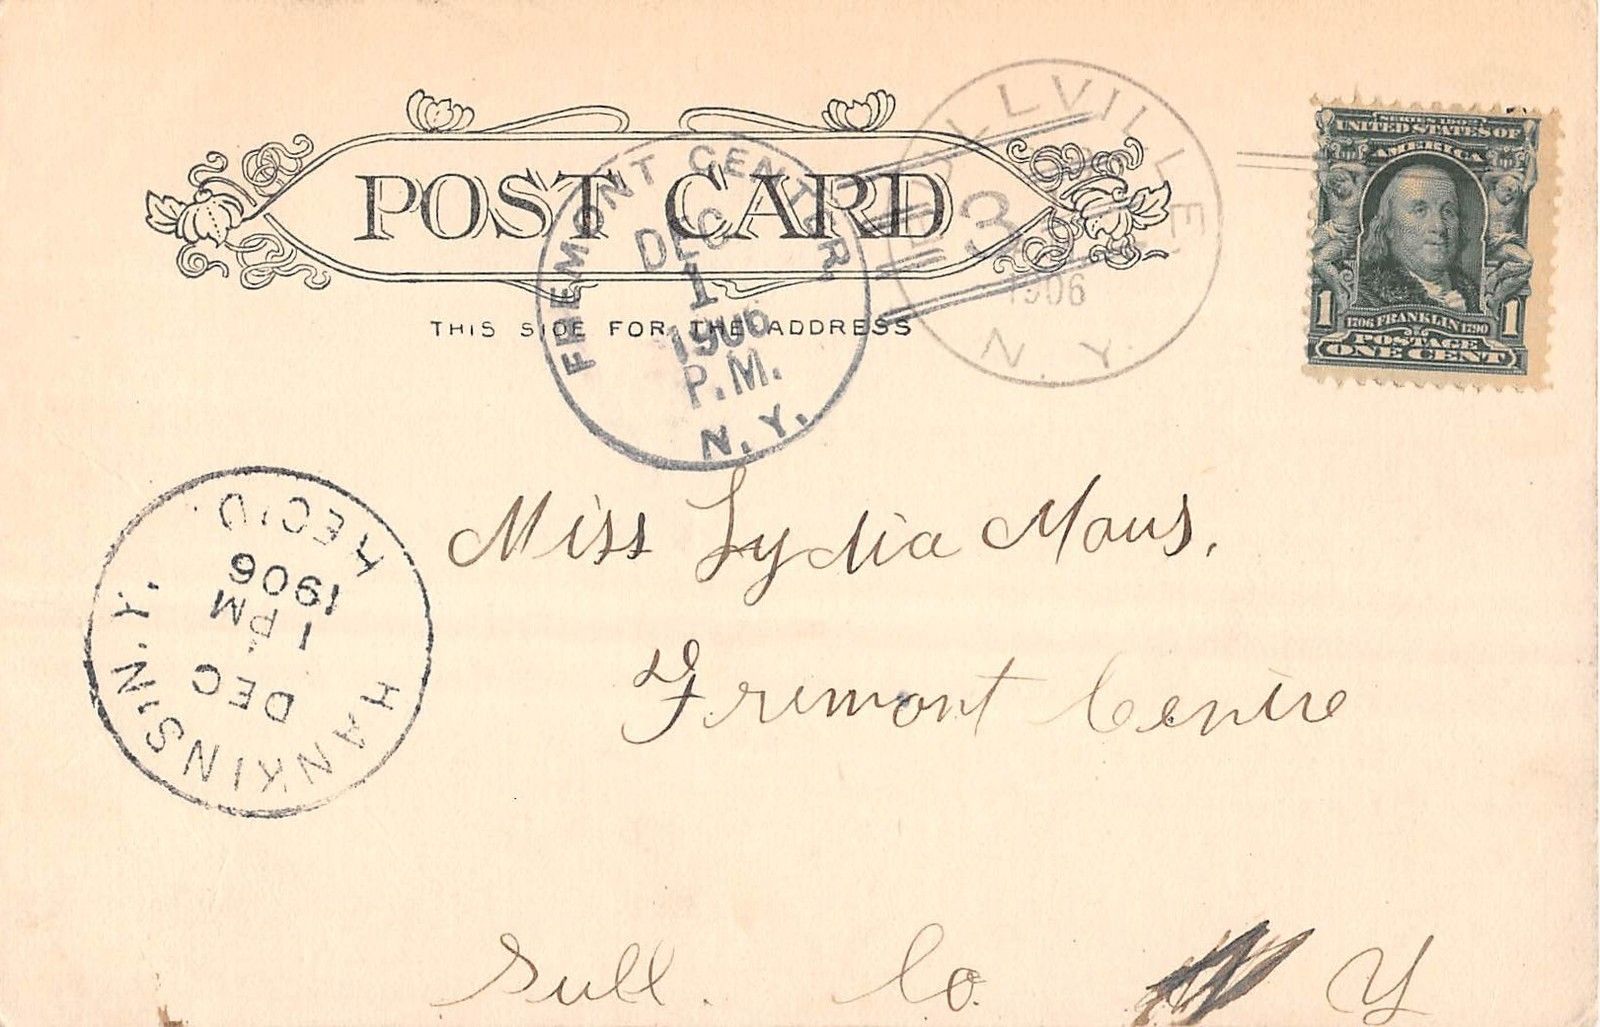 POST CARD
THIS SIDE FOR THE ADDRESS
FREMONT CENTER
DEC
1
1906
P.M.
N.Y.
LLVILLE
3
1906
N.Y.
SERIES 1902
UNITED STATES OF
AMERICA
1 1
1706 FRANKLIN 1790
POSTAGE
ONE CENT
HANKINS, N.Y.
DEC
1 PM
1906
REC'D.
Miss Lydia Maus.
Fremont Centre
Sull. Co. N Y